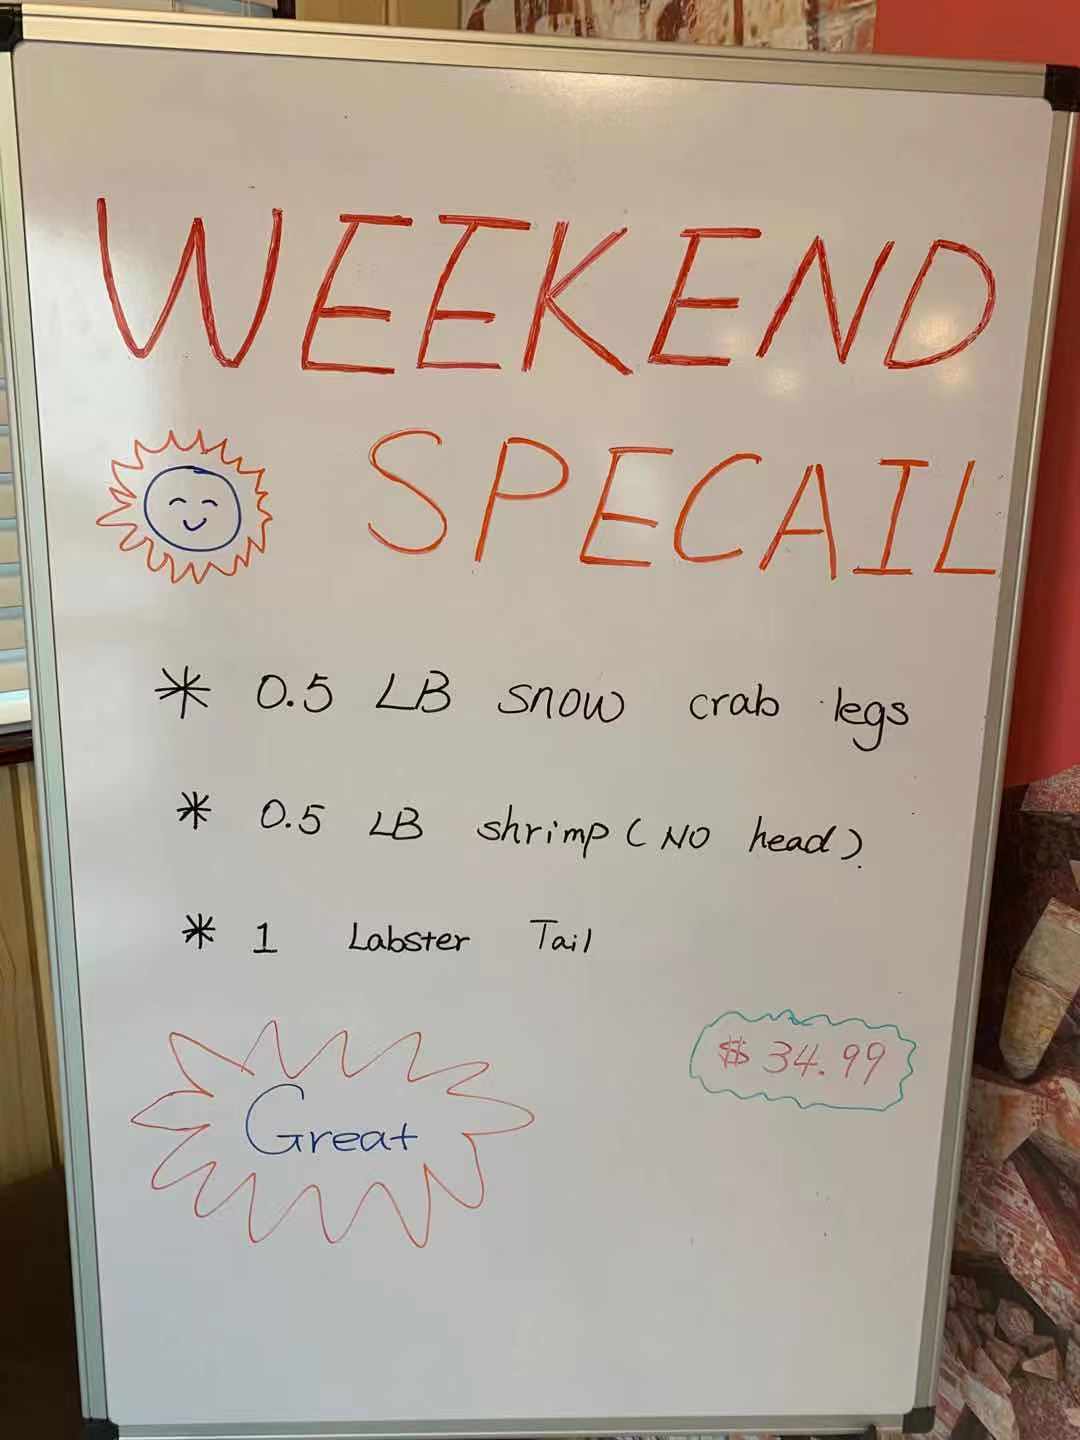 WEEKEND
SPECAIL
* 0.5 LB snow crab legs
* 0.5 LB shrimp (NO head).
* 1 Labster Tail
$34.99
Great